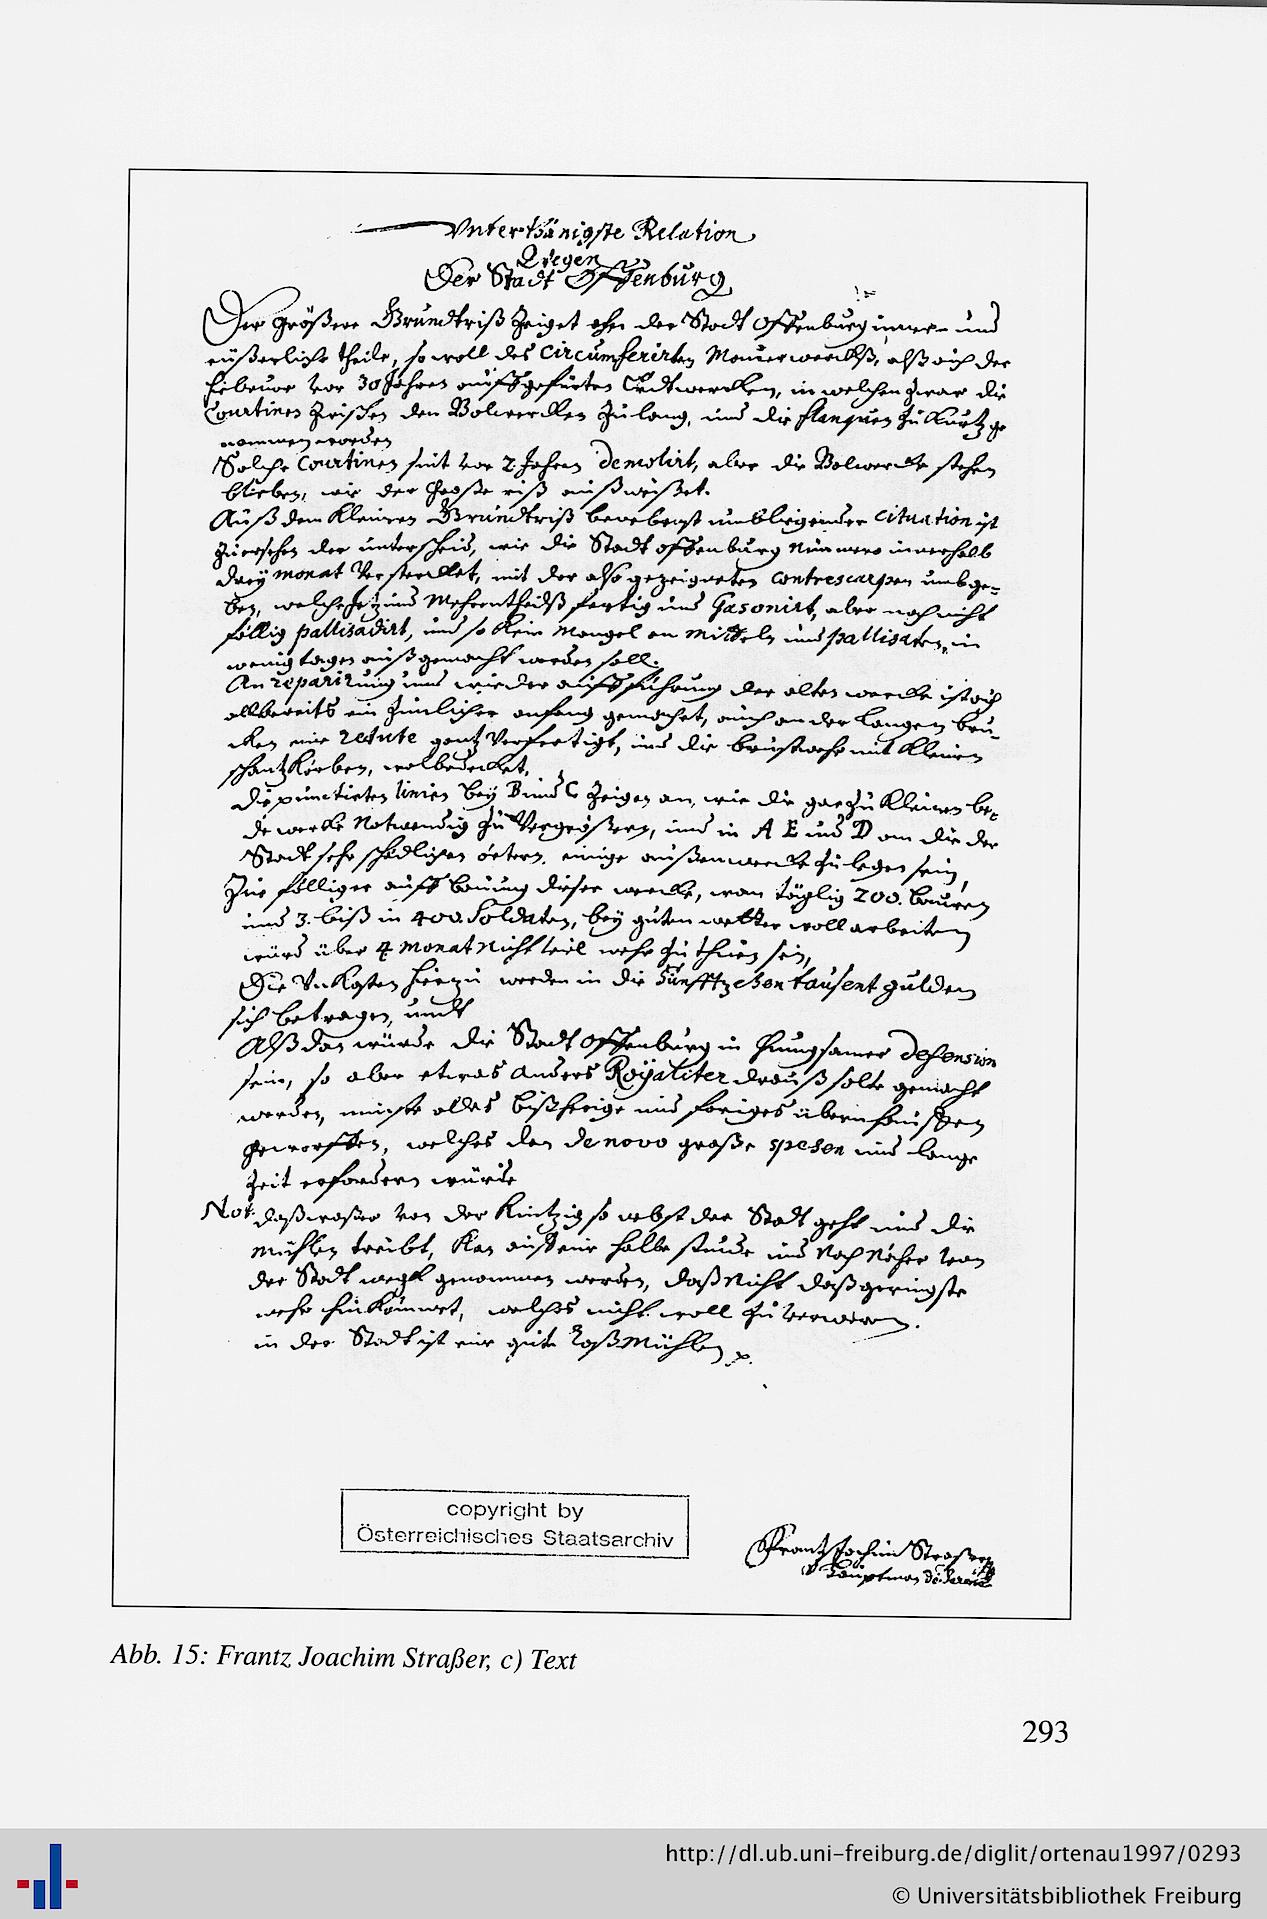 Unterthänigste Relation
Wegen
Der Stadt Offenburg
Der größere Grundtriß zeiget ahn der Stadt Offenburg inner- und
eüßerliche theile, so woll des circumferirten Mauerwerckhß, alß auch der
hiebevor vor 30 Jahren auffgefürten Erdtwercken, in welchen zwar die
Courtinen zwischen den Bolwercken zu lang, und die flanquen zu kurtz ge
nommen worden
Solche Courtinen seint vor 2. Jahren demolirt, aber die Bolwercke stehen
blieben, wie der große riß außweißet.
Auß dem kleinen Grundtriß umbligender cituation ist
zu ersehen der unterscheid, wie die Stadt Offenburg nunmero innerhalb
dreÿ monat versterckhet, mit der also gezeigneten contrescarpen umbge-
ben, welche jetz und mehrentheilß fertig und gasonirt, aber noch nicht
föllig pallisadirt, und so kein mangel an mitteln und pallisaten, in
wenig tagen auß gemacht werden soll.
An reparirung und wieder auffführung der alten wercke ist auch
allbereits ein zimlicher anfang gemachet, auch an der langen bru-
cken eine redute gantz verfertigt, und die brustwehr mit kleinen
schantzkörben, wolbedecket.
die punctirten linien beÿ B und C zeigen an, wie die gar zu kleinen be-
de wercke notwendig zu vergrößern, und in A E und D an die der
Stadt sehr schedlichen örtern, einige außenwercke zu legen sein,
Zur völliger auffbauung dieser wercke, wan täglig 200. bauren
und 3. biß in 400. Soldaten, beÿ guten wetter woll arbeiten
würd über 4 monat nicht viel mehr zu thun sein,
Die Unkosten hierzu werden in die fünfftzehen tausent gulden
sich betragen, undt
Alß dan würde die Stadt Offenburg in gnugsamer defension
sein, so aber etwas anders Roÿaliter drauß solte gemacht
werden, müste alles bißherige und foriges übern hauffen
geworffen, welches dan de novo große spesen und lange
Zeit erfordern würde
Not: daß waßer von der Kintzig so nebst der Stadt geht und die
mühlen treibt, kan auff eine halbe stunde und noch näher von
der Stadt wegk genommen werden, daß nicht daß geringste
mehr hinkommet, welches nicht woll zu verwern.
in der Stadt ist eine gute Roßmühlen
copyright by
Österreichisches Staatsarchiv
Frantz Jochim Straßer
Hauptman
Abb. 15: Frantz Joachim Straßer, c) Text
293
http://dl.ub.uni-freiburg.de/diglit/ortenau1997/0293
© Universitätsbibliothek Freiburg